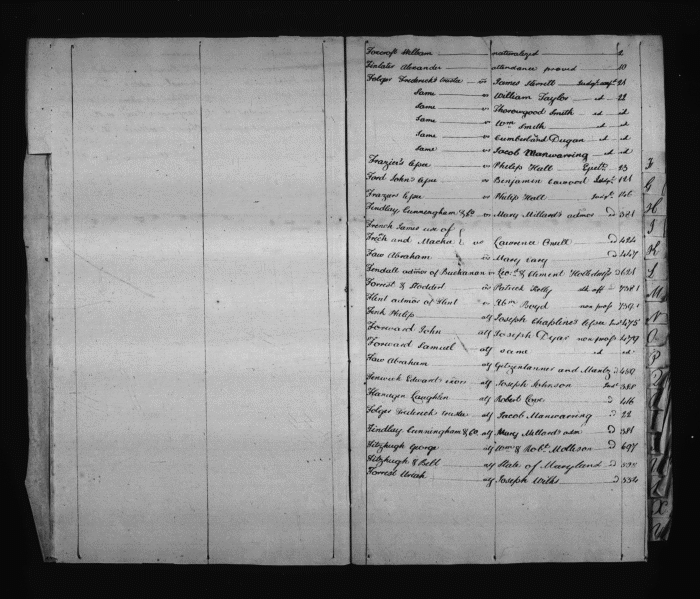 Foxcroft William naturalized 2
Finlater Alexander attendance proved 10
Folger Frederick's trustee vs James Sterett Judgt 21
Same vs William Taylor d 22
Same vs Thorowgood Smith d d
Same vs Wm Smith d d
Same vs Cumberland Dugan d d
Same vs Jacob Manwarring d d
Frazier's lessee vs Philip Hall 23
Ford John's lessee vs Benjamin Judgt 121
Frazers lessee vs Philip Hall Judgt
Findlay, Cunningham & Co vs Mary Millard's admor D 381
French James use of
Frech and vs Lawrence D 424
Faw Abraham vs Mary D 447
Fendall admor of Buchanan vs Clement 621
Forrest & Stoddert vs Patrick Kelly 738
Flint admor of Flint vs Wm Boyd non pros 739
Fink Philip atf Joseph Chapline's lessee Jud 475
Forward John atf Joseph non pros 479
Forward Samuel atf same d d
Faw Abraham atf Getzendanner and Mantz 480
Fenwick Edward exors atf Joseph Johnson Jud 388
Flanagen Laughlin atf Robert D 416
Folger Frederick trustee atf Jacob Manwarring D 22
Findlay, Cunningham & Co. atf Mary Millards adm D 381
Fitzhugh George atf Wm & Robt Mollison D 697
Fitzhugh & Bell atf State of Maryland D 535
Forrest Uriah atf Joseph Wilks D 554
F
G
H
I
K
L
M
N
O
P
X